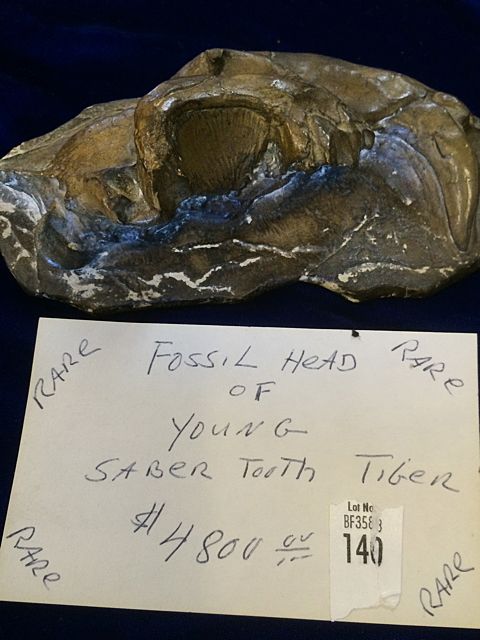 RARE
FOSSIL HEAD
RARE
OF
YOUNG
SABER TOOTH TIGER
$4800 00
RARE
Lot No.
BF3583
140
RARE